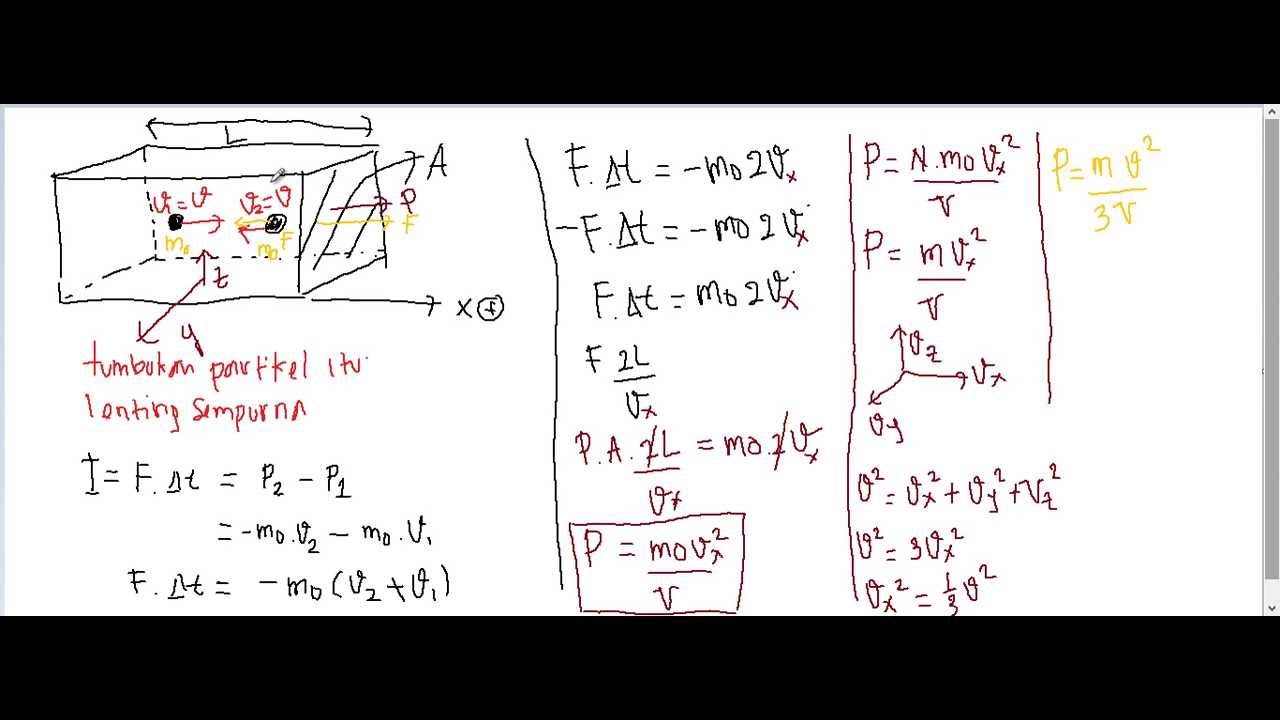 L
A
v₁=v
v₂=v
P
F
m₀
m₀
F
z
y
x (+)
tumbukan partikel itu
lenting sempurna
I = F.Δt = P₂ - P₁
= -m₀.v₂ - m₀.v₁
F.Δt = -m₀(v₂+v₁)
F.Δt = -m₀2vₓ
-F.Δt = -m₀2vₓ
F.Δt = m₀2vₓ
F 2L/vₓ
P.A.2L/vₓ = m₀.2vₓ
P = m₀vₓ²/V
P = N.m₀vₓ²/V
P = mvₓ²/V
v_z
vₓ
v_y
v² = vₓ²+v_y²+v_z²
v² = 3vₓ²
vₓ² = 1/3 v²
P = m v²/3V